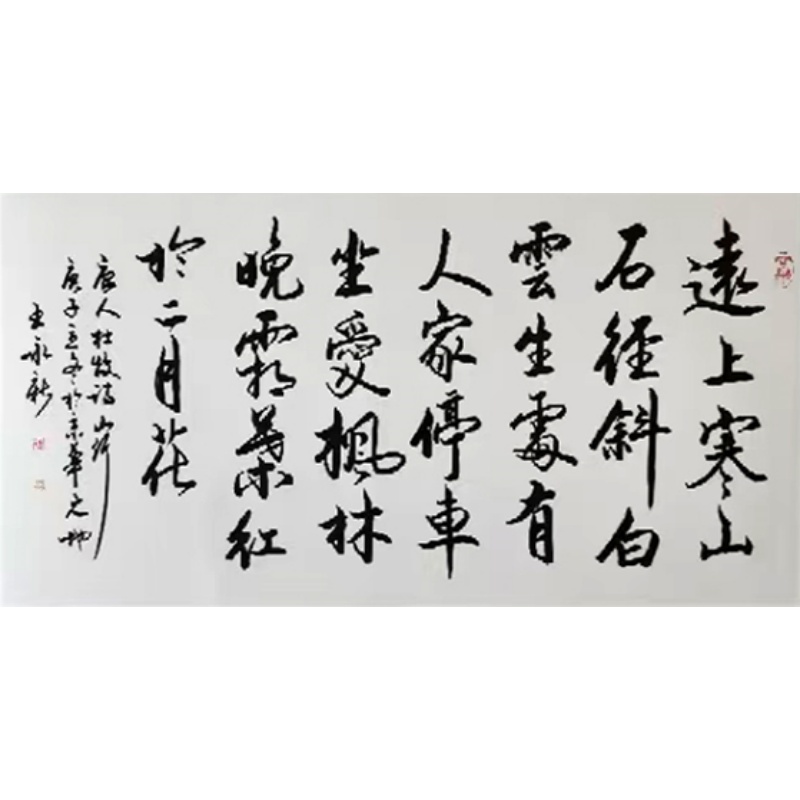 遠上寒山
石徑斜白
雲生處有
人家停車
坐愛楓林
晚霜葉紅
於二月花
唐人杜牧詩山行
庚子立冬於京華之
王永新